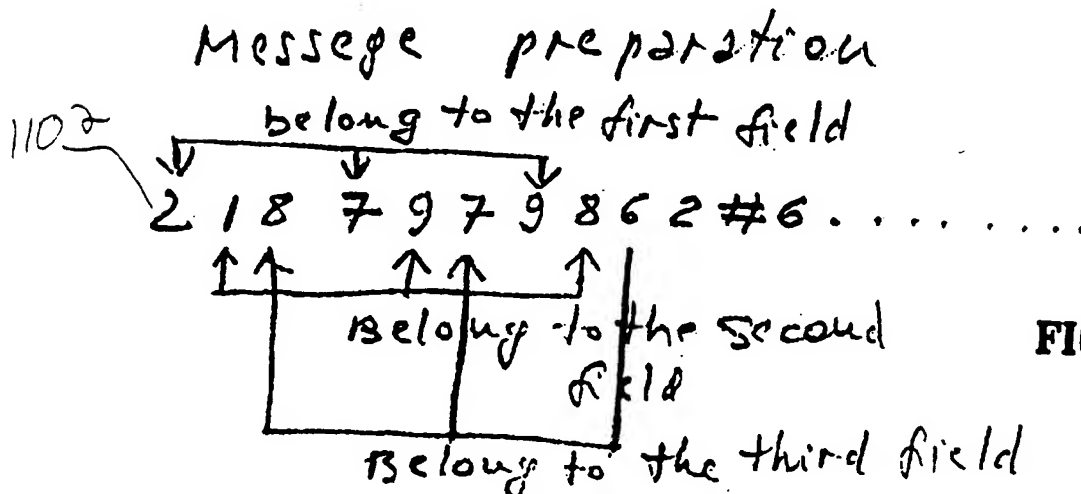 Messege preparation
belong to the first field
1102
2 1 8 7 9 7 9 8 6 2 # 6 . . . . . . . . .
Belong to the second
field
FI
Belong to the third field